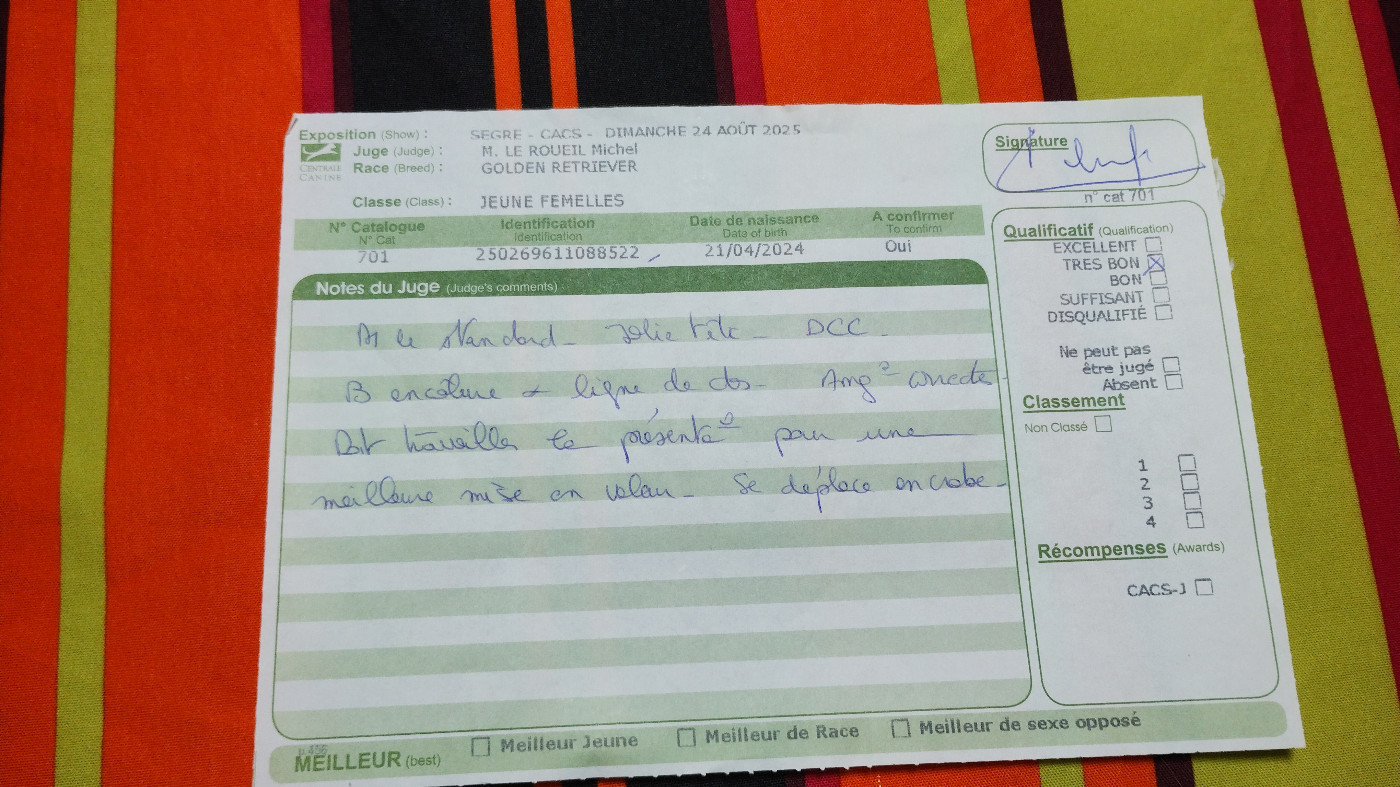 Exposition (Show) : SEGRE - CACS - DIMANCHE 24 AOÛT 2025
Juge (Judge) : M. LE ROUEIL Michel
CENTRALE CANINE
Race (Breed) : GOLDEN RETRIEVER
Classe (Class) : JEUNE FEMELLES
Signature
n° cat 701
N° Catalogue Identification Date de naissance A confirmer
N° Cat Identification Date of birth To confirm
701 250269611088522 21/04/2024 Oui
Notes du Juge (Judge's comments)
le Standard - Jolie tête - DCC -
B encolure + ligne de dos - Ang° correctes -
Doit travailler la présentat° pour une
meilleure mise en valeur - Se déplace en crabe -
Qualificatif (Qualification)
EXCELLENT
TRES BON
BON
SUFFISANT
DISQUALIFIÉ
Ne peut pas
être jugé
Absent
Classement
Non Classé
1
2
3
4
Récompenses (Awards)
CACS-J
p 456
MEILLEUR (best) Meilleur Jeune Meilleur de Race Meilleur de sexe opposé